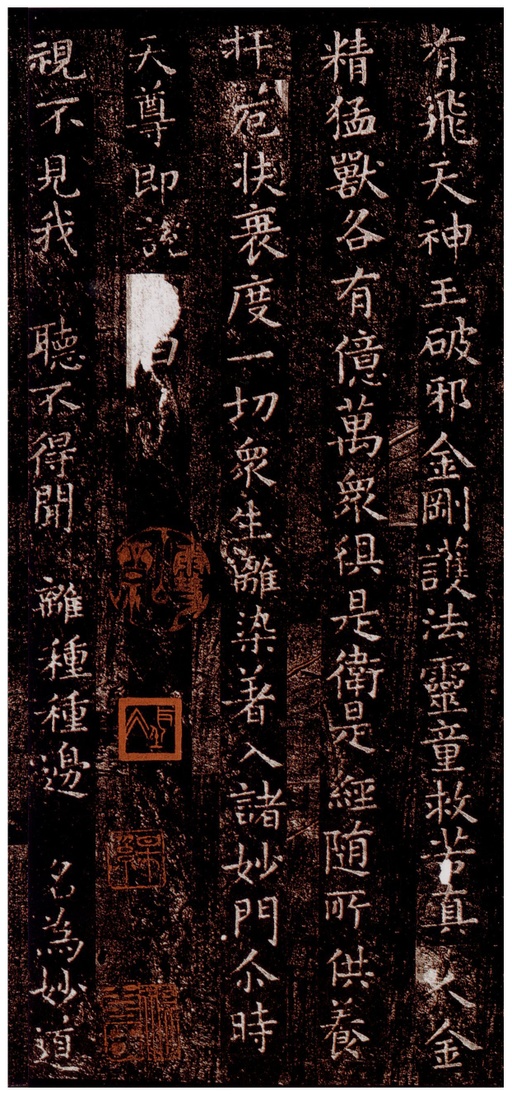 有飛天神王破邪金剛護法靈童救苦真人金
精猛獸各有億萬衆俱是衛是經隨所供養
扞厄扶衰度一切衆生離染著入諸妙門尒時
天尊即說曰
視不見我 聽不得聞 離種種邊 名為妙道